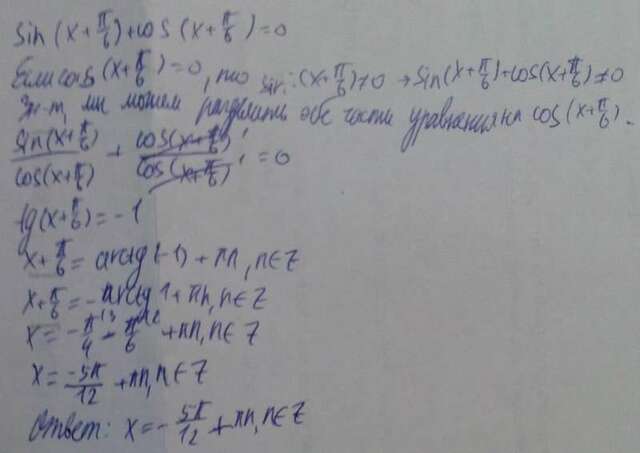 sin(x+π/6)+cos(x+π/6)=0
Если cos(x+π/6)=0, то sin(x+π/6)≠0 → sin(x+π/6)+cos(x+π/6)≠0
Зн-т, мы можем разделить обе части уравнения на cos(x+π/6).
sin(x+π/6)/cos(x+π/6) + cos(x+π/6)/cos(x+π/6) = 0
tg(x+π/6)=-1
x+π/6=arctg(-1)+πn, n∈Z
x+π/6=-arctg1+πn, n∈Z
x=-π/4-π/6+πn, n∈Z
x=-5π/12+πn, n∈Z
Ответ: x=-5π/12+πn, n∈Z